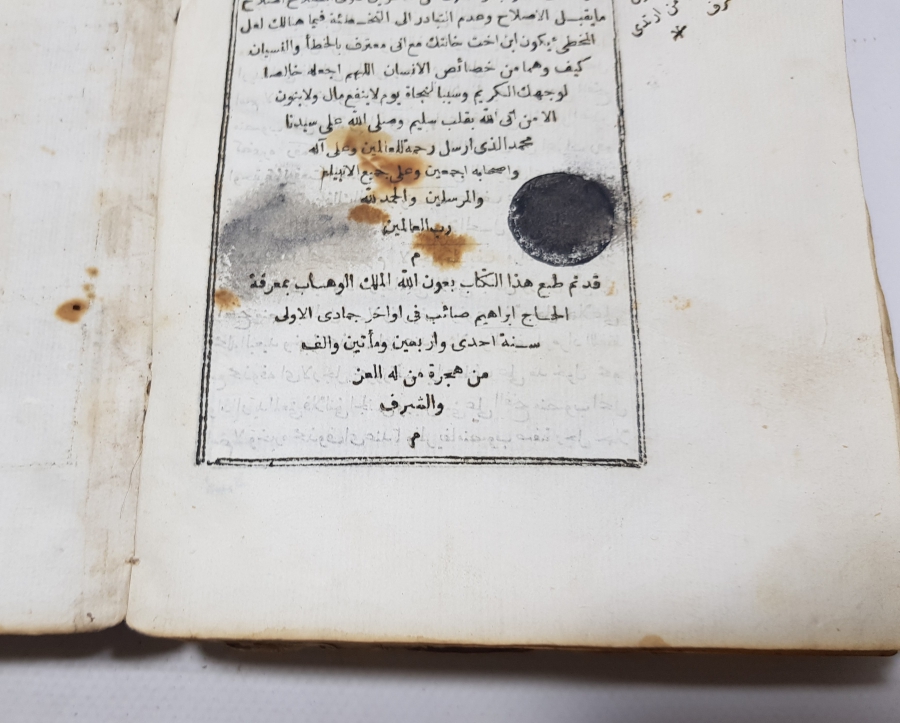 مايقبل الاصلاح وعدم التبادر الى التخطئة فيما هنالك لعل
المخطئ يكون ابن اخت خالتك مع انى معترف بالخطأ والنسيان
كيف وهما من خصائص الانسان اللهم اجعله خالصا
لوجهك الكريم وسببا لنجاة يوم لاينفع مال ولابنون
الا من اتى الله بقلب سليم وصلى الله على سيدنا
محمد الذى ارسل رحمة للعالمين وعلى آله
واصحابه اجمعين وعلى جميع الانبياء
والمرسلين والحمد لله
رب العالمين
م
قدتم طبع هذا الكتاب بعون الله الملك الوهاب بمعرفة
الحاج ابراهيم صائب فى اواخر جمادى الاولى
سنة احدى واربعين ومأتين والف
من هجرة من له العز
والشرف
م